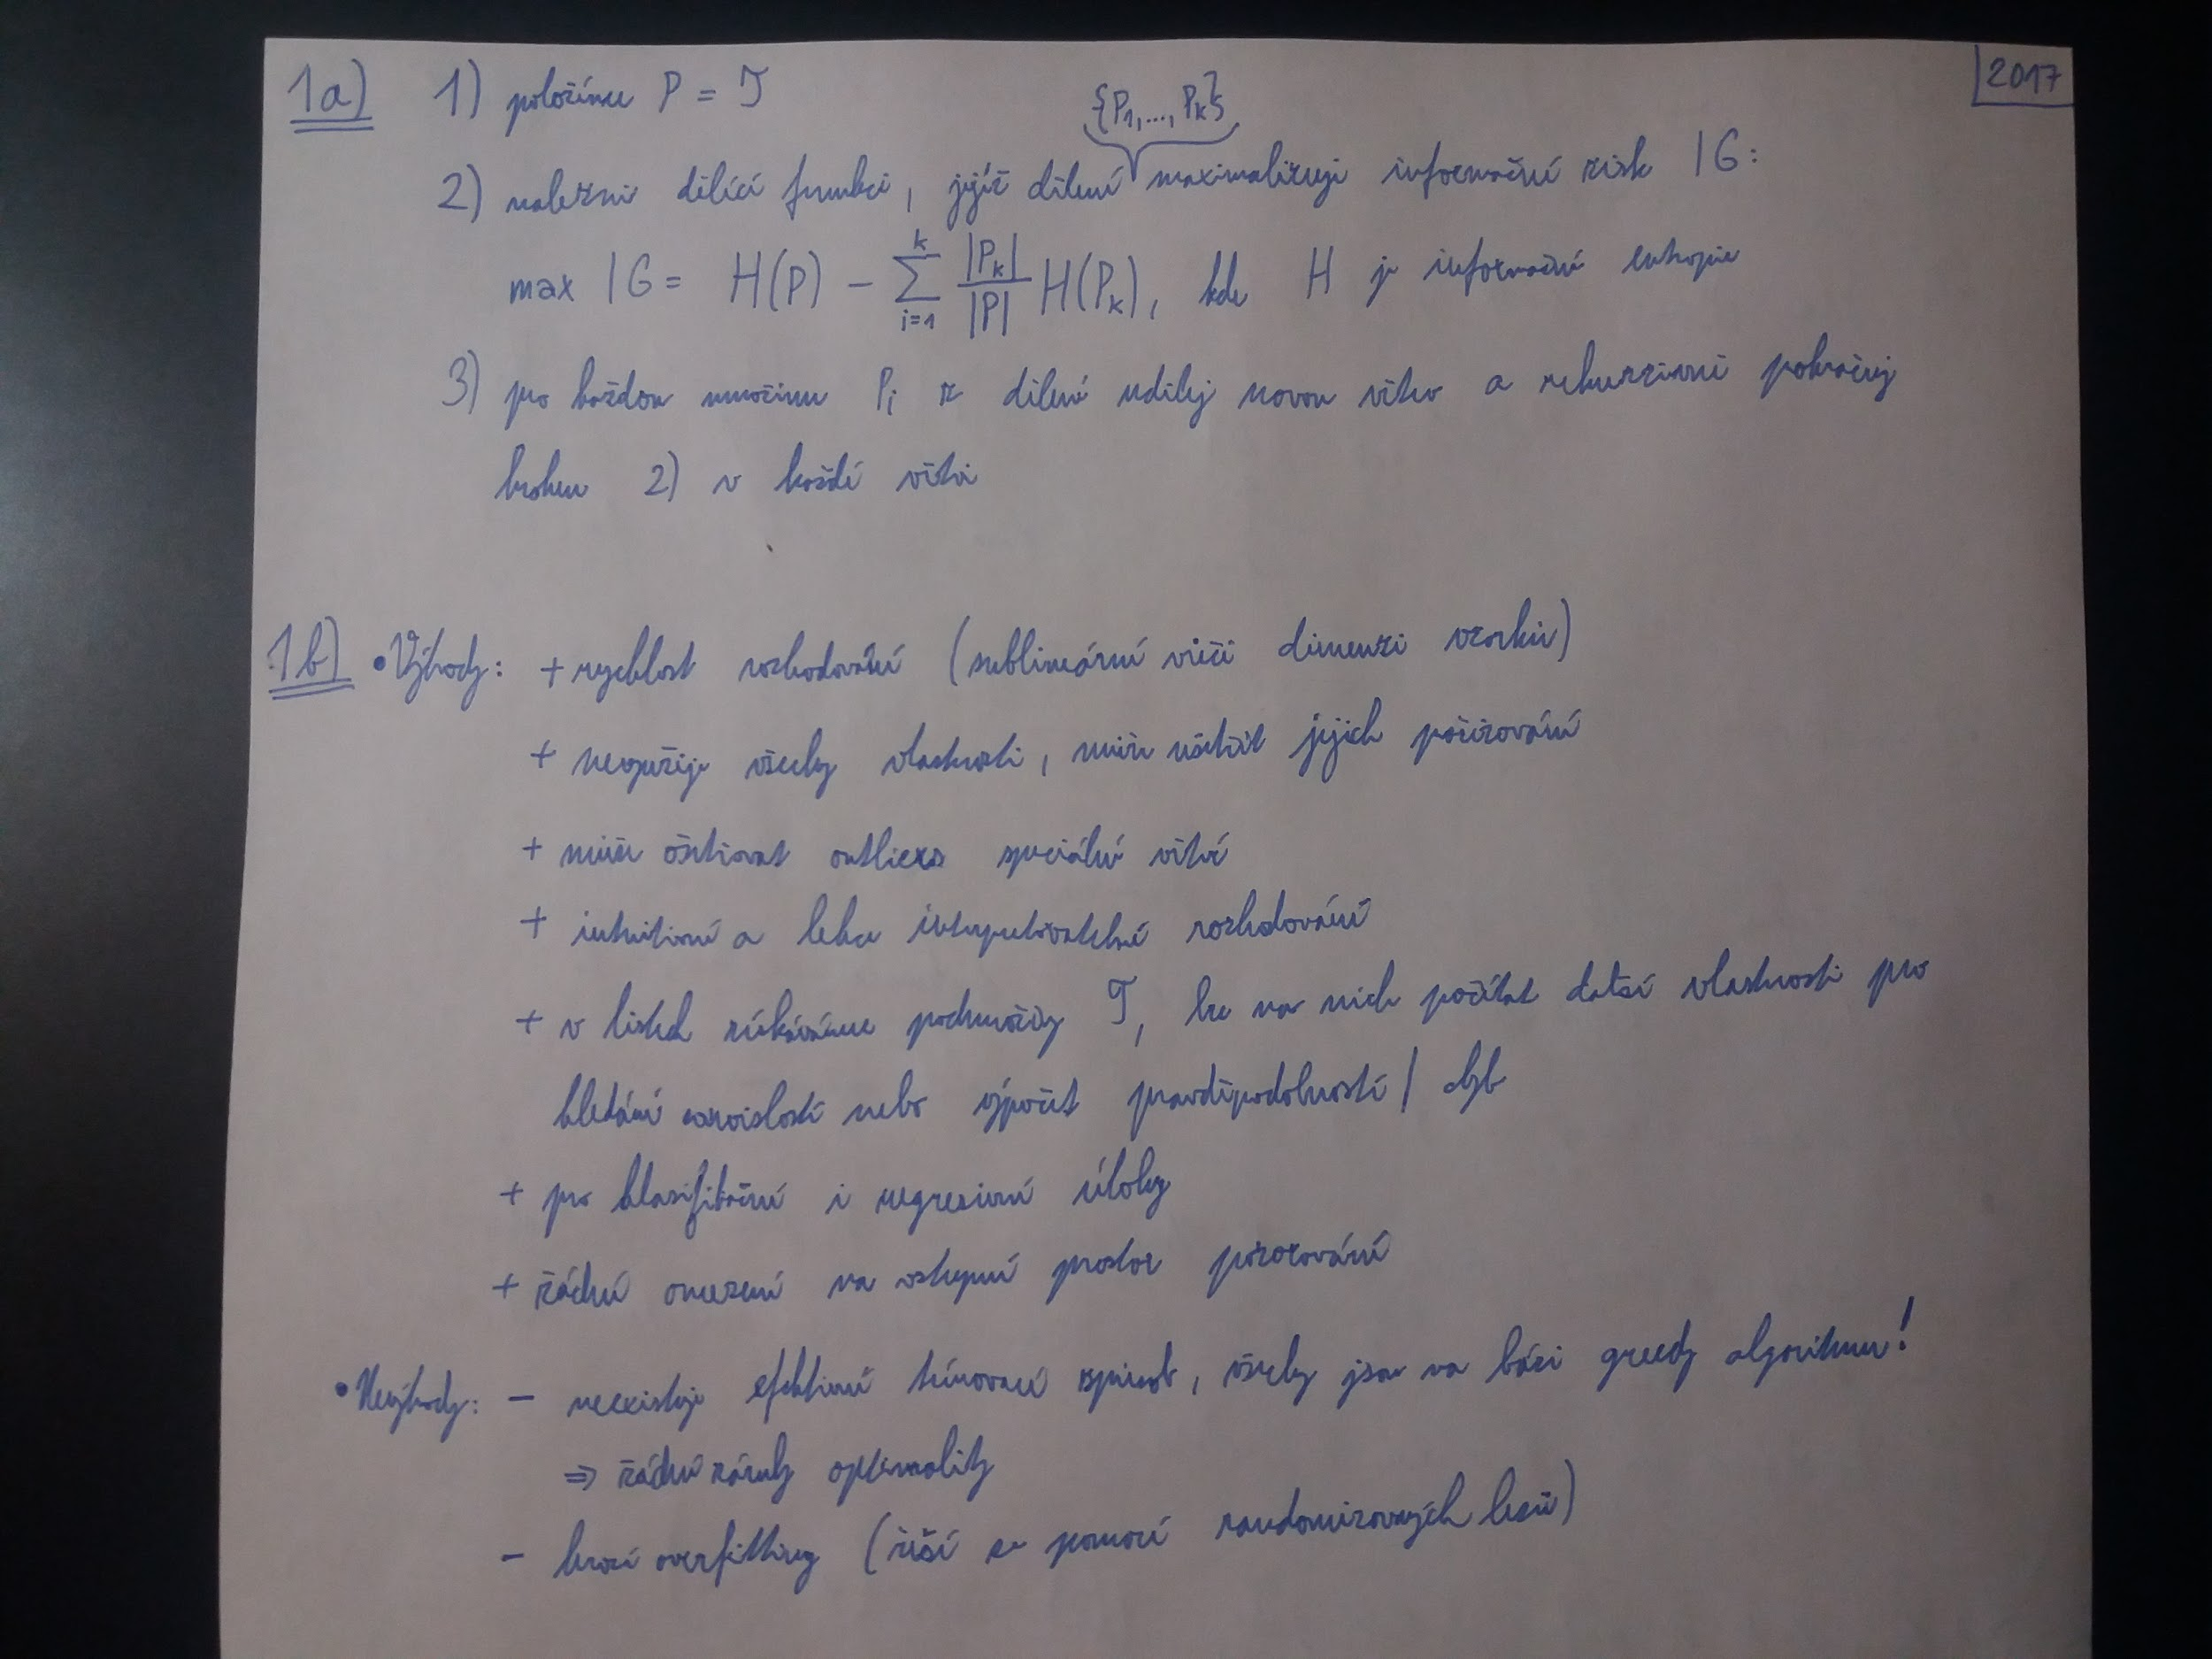 2017
1a) 1) položíme P = T
{P1,..., Pk}
2) nalezni dělící funkci, jejíž dělení maximalizuje informační zisk IG:
max IG = H(P) - \sum_{i=1}^{k} \frac{|P_k|}{|P|} H(P_k), kde H je informační entropie
3) pro každou množinu Pi z dělení udělej novou větev a rekurzivně pokračuj
krokem 2) v každé větvi
1b) • Výhody: + rychlost rozhodování (sublineární vůči dimenzi vzorků)
+ nevyužije všechny vlastnosti, může ušetřit jejich pořizování
+ může ošetřovat outliers speciální větví
+ intuitivní a lehce interpretovatelné rozhodování
+ v listech získáváme podmnožiny T, lze na nich počítat další vlastnosti pro
hledání souvislostí nebo výpočet pravděpodobností / chyb
+ pro klasifikační i regresivní úlohy
+ žádná omezení na vstupní prostor pozorování
• Nevýhody: - neexistuje efektivní trénovací způsob, všechny jsou na bázi greedy algoritmu!
⇒ žádné záruky optimality
- hrozí overfitting (řeší se pomocí randomizovaných lesů)